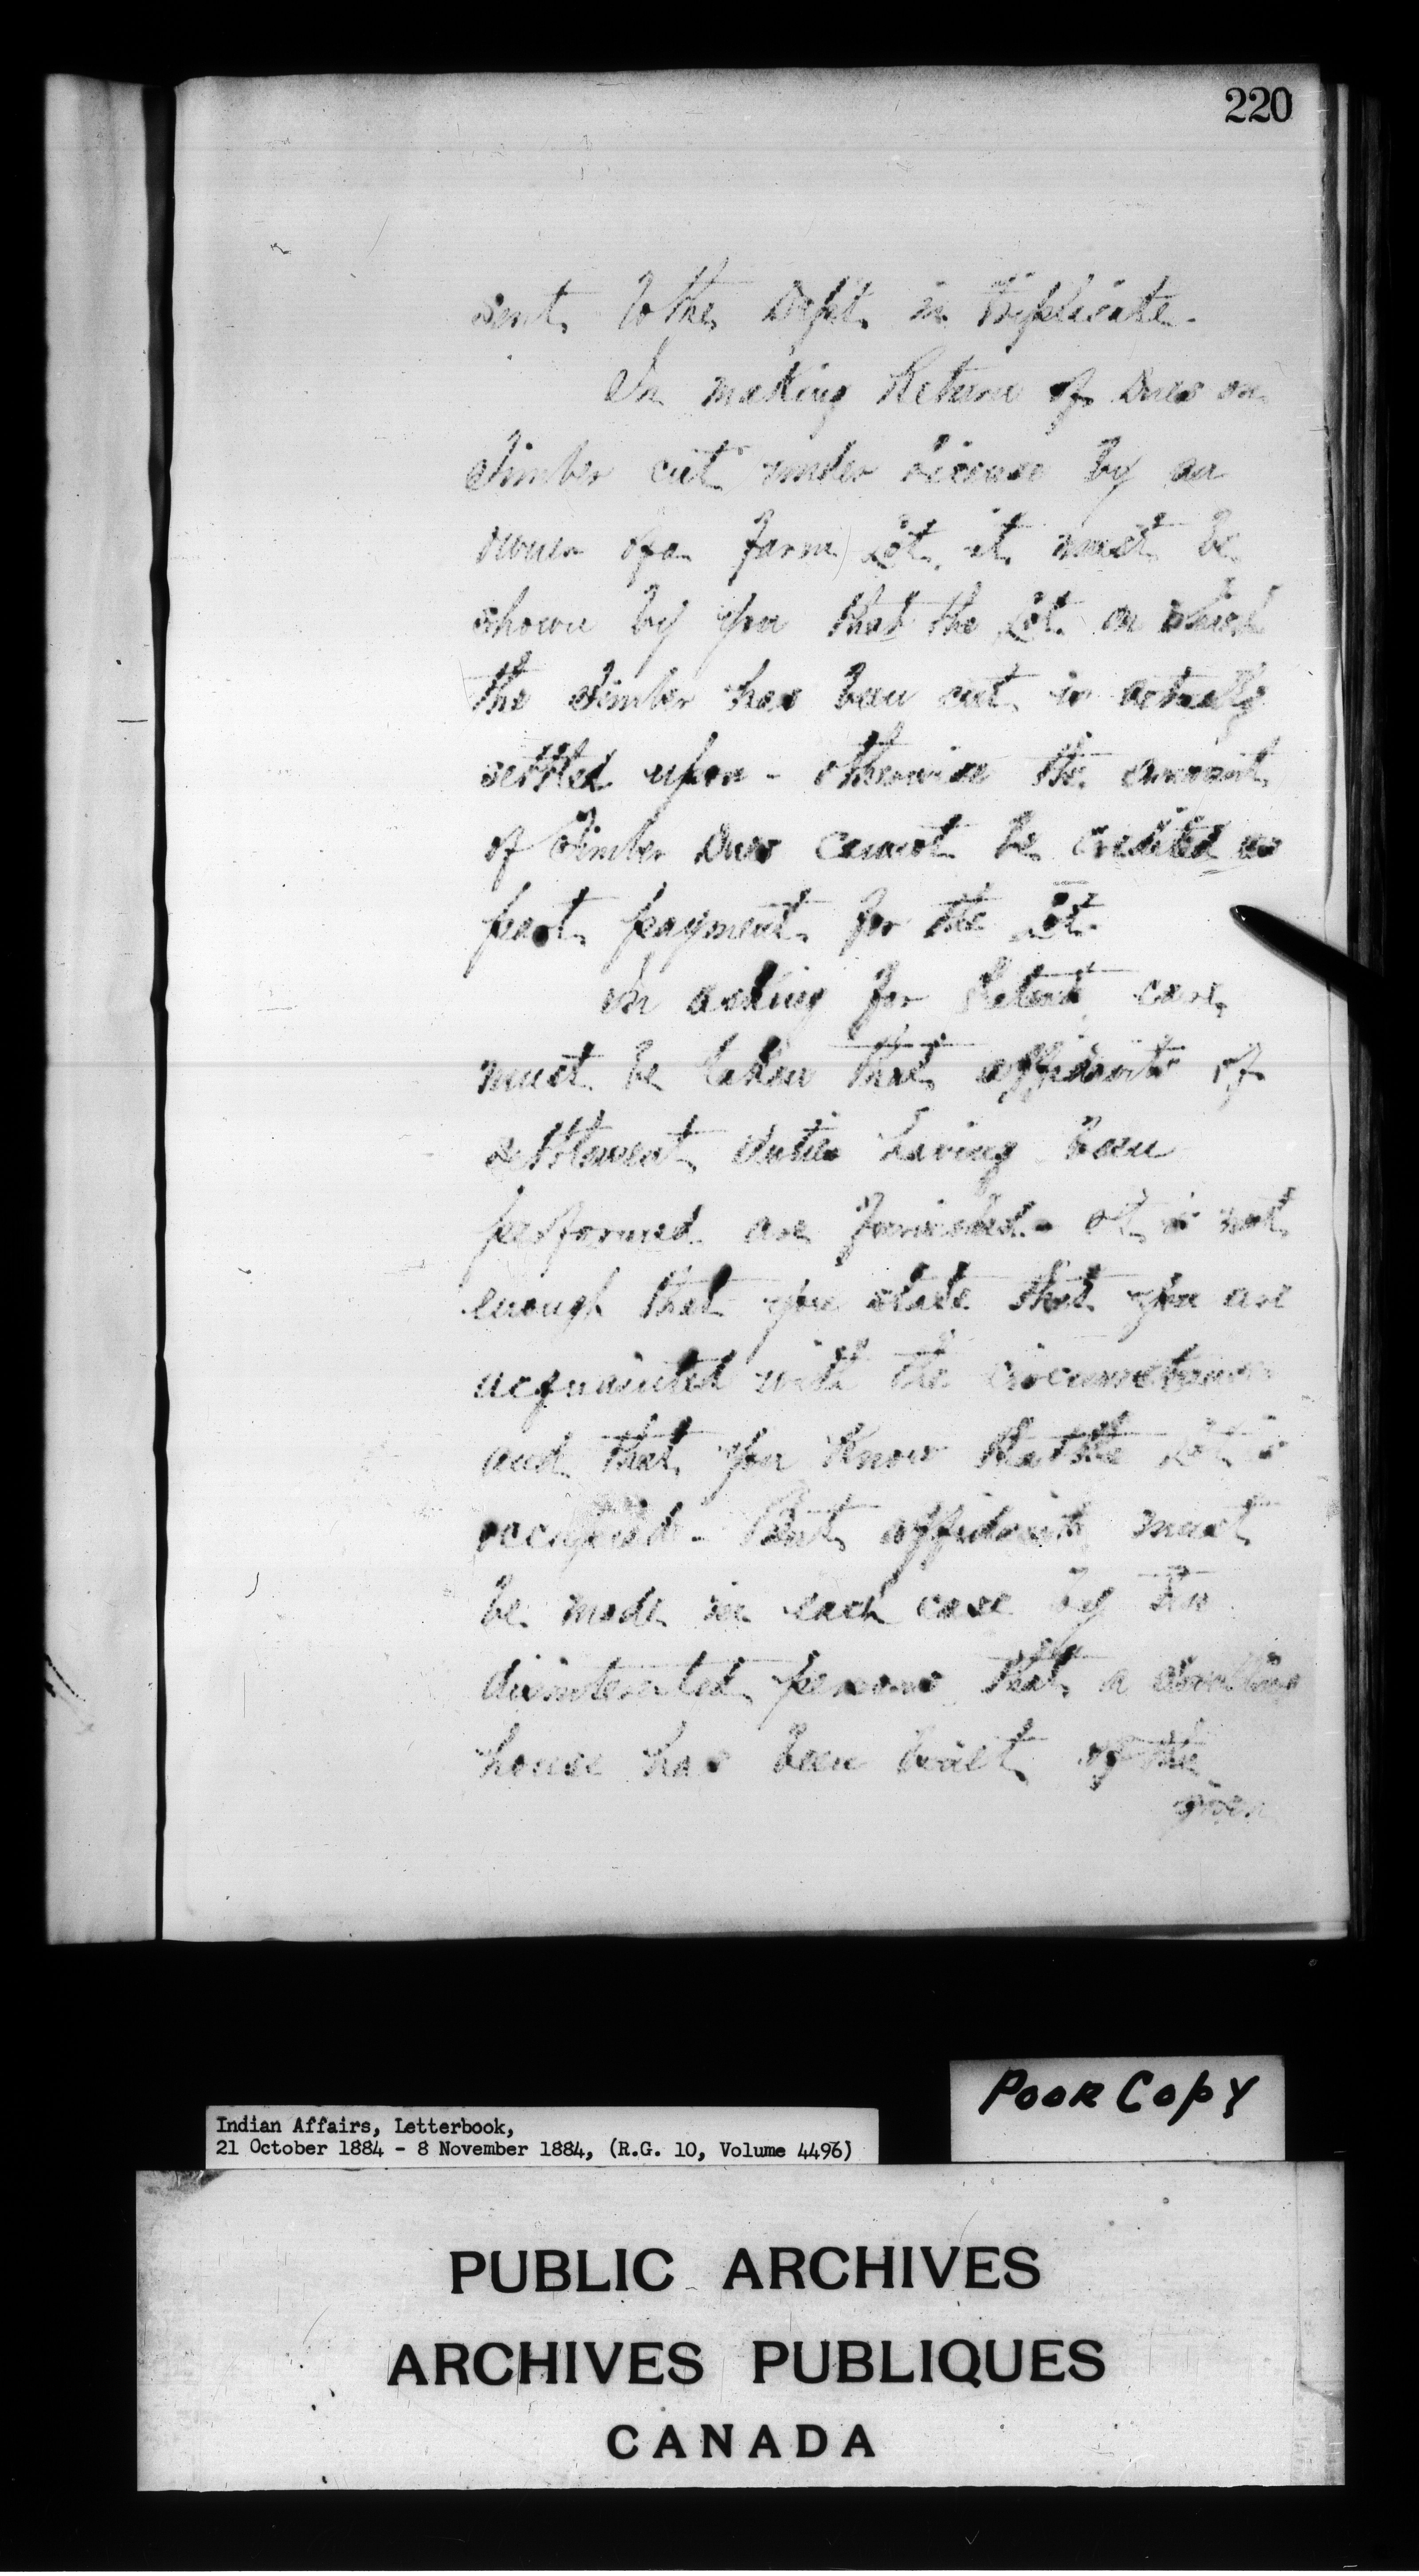 220
sent to the Dept. in triplicate.
In making Return of Dues on
Timber cut under License by an
owner of a farm Lot, it must be
shown by you that the Lot on which
the Timber has been cut is actually
settled upon - otherwise the amount
of Timber Dues cannot be credited as
part payment for the Lot.
In asking for Patent, care
must be taken that affidavits of
settlement duties having been
performed are furnished - It is not
enough that you state that you are
acquainted with the circumstances
and that you know that the Lot is
occupied - But affidavits must
be made in each case by two
disinterested persons that a dwelling
house has been built of the
given
Poor Copy
Indian Affairs, Letterbook,
21 October 1884 - 8 November 1884, (R.G. 10, Volume 4496)
PUBLIC ARCHIVES
ARCHIVES PUBLIQUES
CANADA